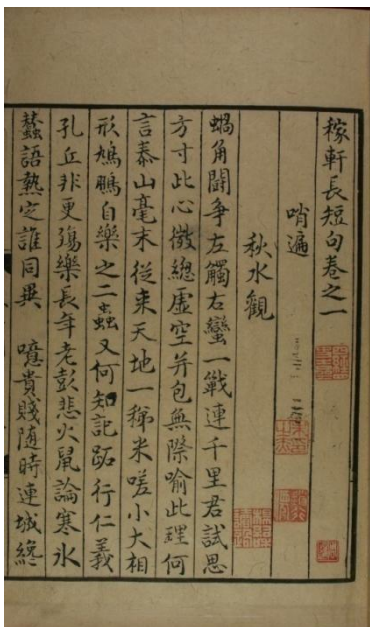 稼軒長短句卷之一
哨遍
秋水觀
蝸角闘争左觸右蠻一戰連千里君試思
方寸此心微總虛空并包無際喻此理何
言泰山毫末從来天地一稊米嗟小大相
形鳩鵬自樂之二蟲又何知記跖行仁義
孔丘非更殤樂長年老彭悲火鼠論寒氷
蠶語熱定誰同異 噫貴賤隨時連城纔